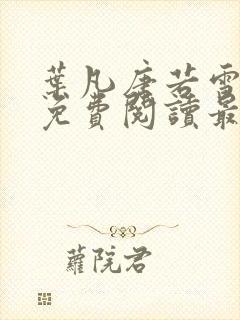 葉凡唐若雪
免費閱讀最
蘿院君